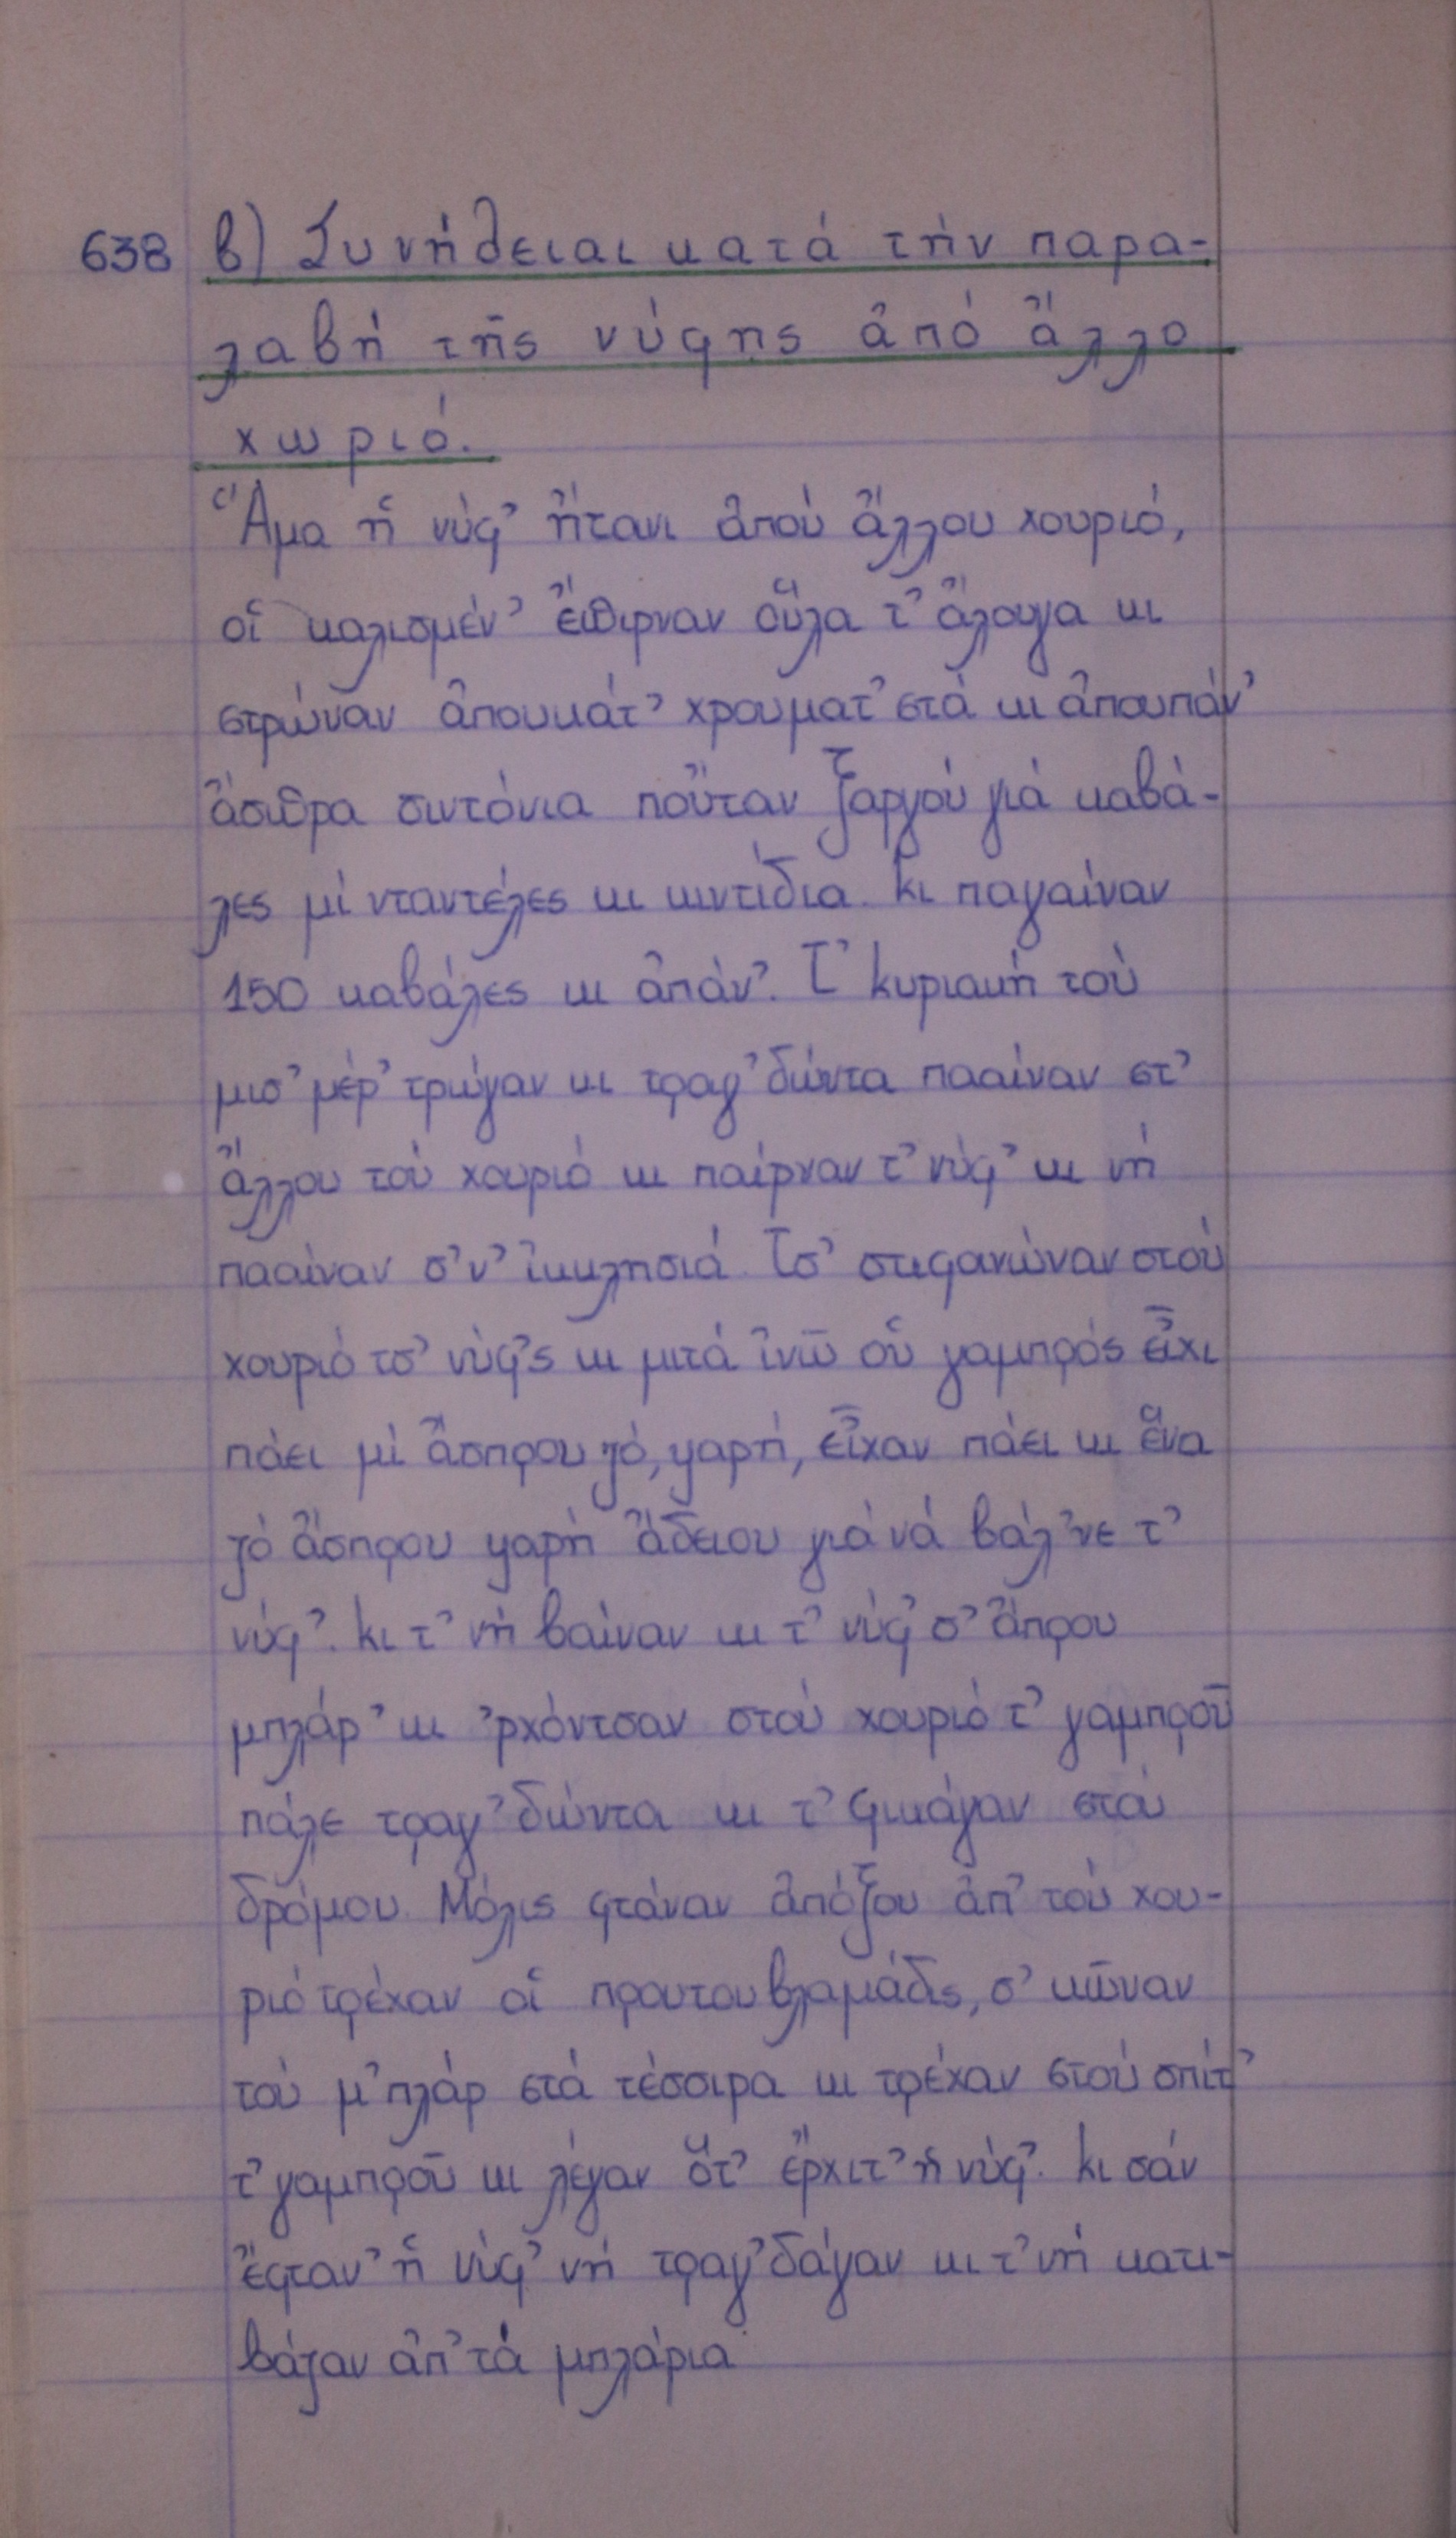 638 β) Συνήθειαι κατά τήν παρα-
λαβή τῆς νύφης ἀπό ἄλλο
χωριό.
Ἅμα ἡ νύφ' ἤτανι ἀπού ἄλλου χουριό,
οἱ καλισμέν' ἔπιρναν οὕλα τ' ἄλουγα κι
στρώναν ἀπουκάτ' χρουματ'στά κι ἀπουπάν'
ἄσπρα σιντόνια ποὔταν ξαργού γιά καβά-
λες μί νταντέλες κι κιντίδια. Κι παγαίναν
150 καβάλες κι ἀπάν'. Τ' Κυριακή τού
μισ'μέρ' τρώγαν κι τραγ'δώντα πααίναν στ'
ἄλλου τού χουριό κι παίρναν τ' νύφ' κι νή
πααίναν σ'ν' ἰκκλησιά. Τσ' στιφανώναν στού
χουριό τσ' νύφ'ς κι μιτά ἰνῶ οὑ γαμπρός εἶχι
πάει μί ἄσπρου ζό, γαρή, εἶχαν πάει κι ἕνα
ζό ἄσπρου γαρή ἄδειου γιά νά βάλ'νε τ'
νύφ'. Κι τ' νή βαίναν κι τ' νύφ' σ' ἄπρου
μπλάρ' κι 'ρχόντσαν στού χουριό τ' γαμπροῦ
πάλε τραγ'δώντα κι τ' φικάγαν στού
δρόμου. Μόλις φτάναν ἀπόξου ἀπ' τού χου-
ριό τρέχαν οἱ προυτουβλαμάδις, σ'κῶναν
τού μ'πλάρ στά τέσσιρα κι τρέχαν στού σπίτ'
τ' γαμπροῦ κι λέγαν ὅτ' ἔρχιτ' ἡ νύφ'. Κι σάν
ἔφταν' ἡ νύφ' νή τραγ'δάγαν κι τ' νή κατι-
βάζαν ἀπ' τά μπλάρια